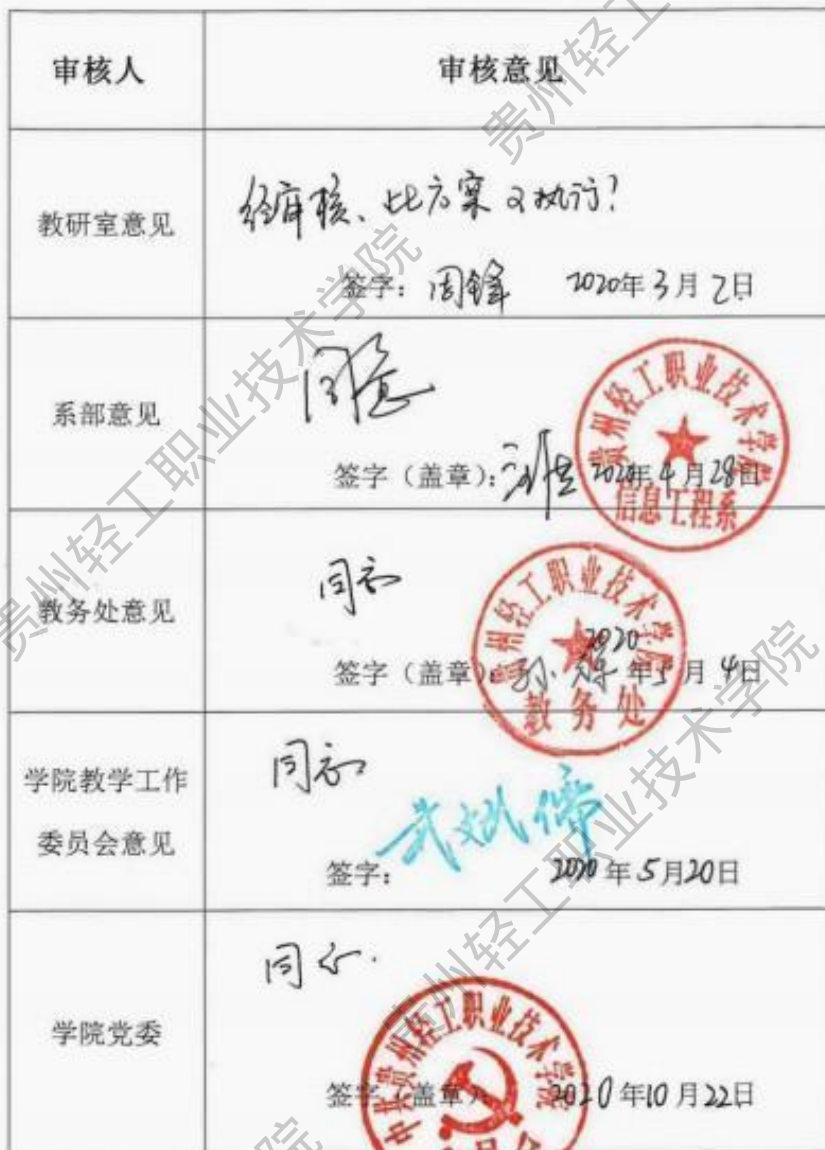 审核人
审核意见
教研室意见
经审核、此方案可执行!
签字: 周锋 2020年3月2日
系部意见
同意
签字(盖章): 2020年4月28日
贵州轻工职业技术学院
信息工程系
教务处意见
同意
签字(盖章): 2020年5月4日
贵州轻工职业技术学院
教务处
学院教学工作
委员会意见
同意
签字: 2020年5月20日
学院党委
同意.
签字(盖章): 2020年10月22日
中共贵州轻工职业技术学院
贵州轻工职业技术学院
贵州轻工职业技术学院